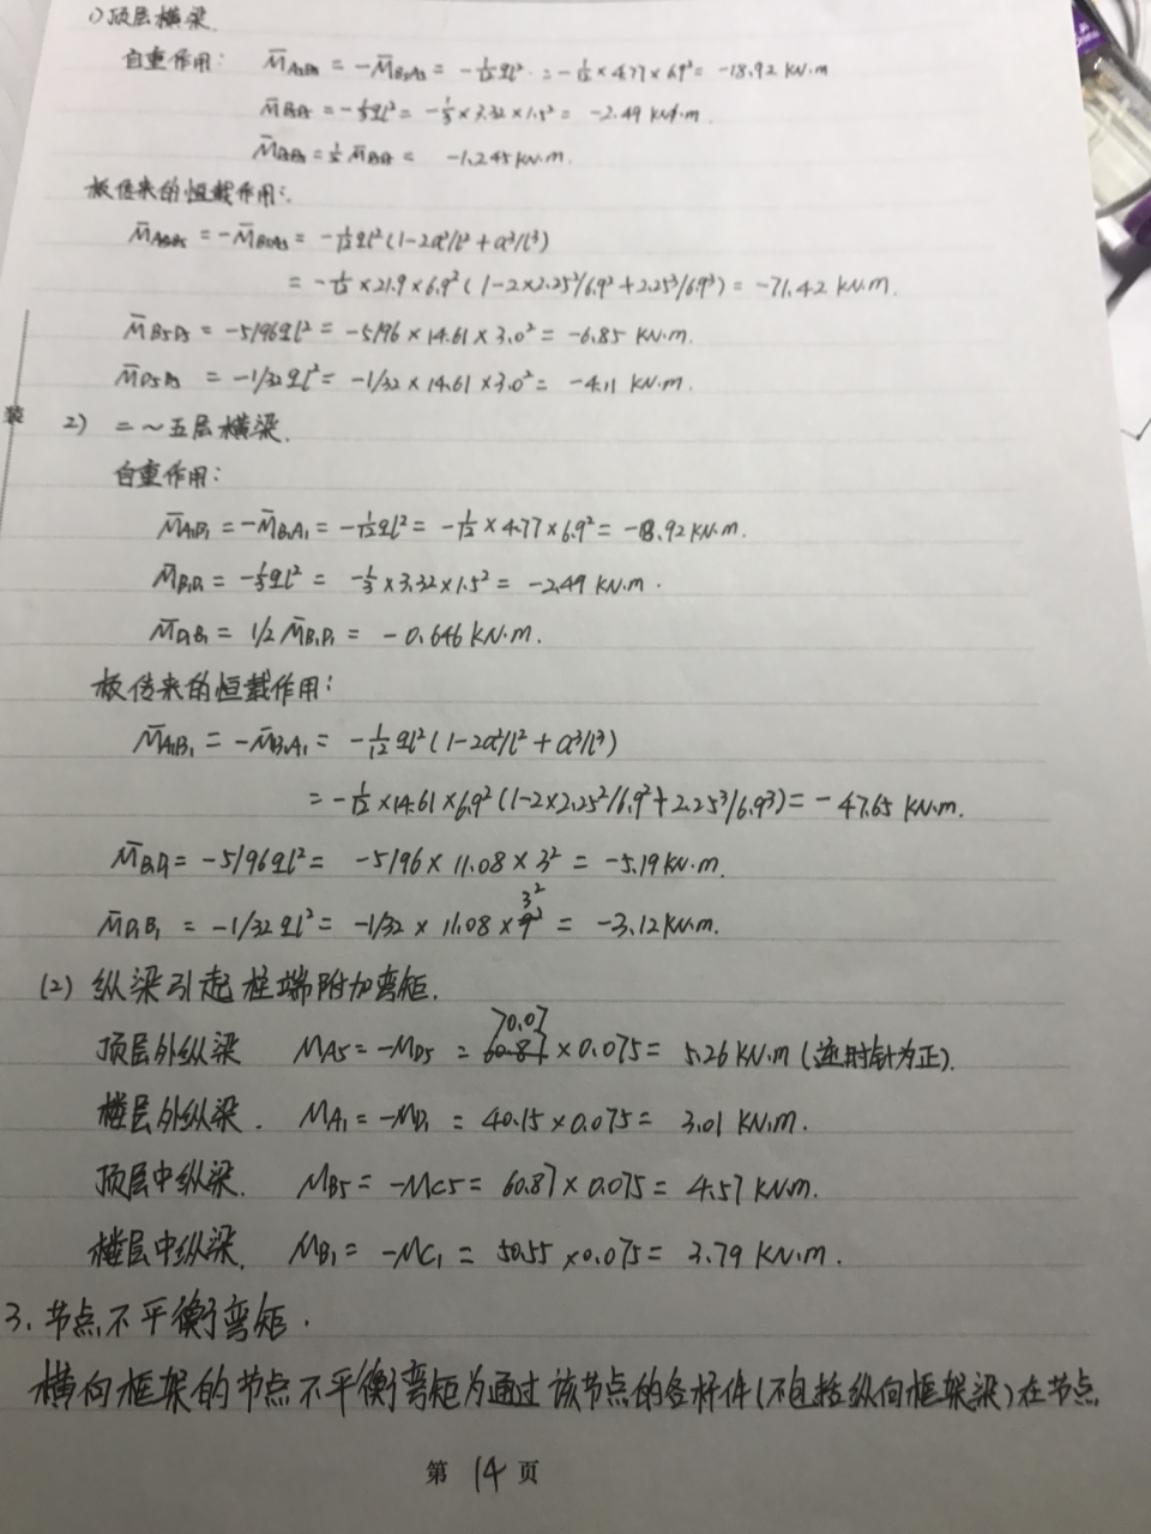 1)顶层横梁.
自重作用: M̄A5B5 = -M̄B5A5 = -1/12ql². = -1/12×4.77×6.9²= -18.92 kN·m
M̄B5D5 = -1/3ql² = -1/3×3.32×1.5² = -2.49 kN·m.
M̄D5B5 = 1/2 M̄B5D5 = -1.245 kN·m.
板传来的恒载作用:
M̄A5B5 = -M̄B5A5 = -1/12ql²(1-2a²/l²+a³/l³)
= -1/12×21.9×6.9²(1-2×2.25²/6.9²+2.25³/6.9³) = -71.42 kN·m.
M̄B5D5 = -5/96ql² = -5/96×14.61×3.0² = -6.85 kN·m.
M̄D5B5 = -1/32ql² = -1/32×14.61×3.0² = -4.11 kN·m.
装
2) 二~五层横梁.
自重作用:
M̄A1B1 = -M̄B1A1 = -1/12ql² = -1/12×4.77×6.9² = -18.92 kN·m.
M̄B1D1 = -1/3ql² = -1/3×3.32×1.5² = -2.49 kN·m.
M̄D1B1 = 1/2 M̄B1D1 = -0.646 kN·m.
板传来的恒载作用:
M̄A1B1 = -M̄B1A1 = -1/12ql²(1-2a²/l²+a³/l³)
= -1/12×14.61×6.9²(1-2×2.25²/6.9²+2.25³/6.9³) = -47.65 kN·m.
M̄B1D1 = -5/96ql² = -5/96×11.08×3² = -5.19 kN·m.
M̄D1B1 = -1/32ql² = -1/32×11.08×3² = -3.12 kN·m.
(2) 纵梁引起柱端附加弯矩.
顶层外纵梁 MA5 = -MD5 = 70.07×0.075 = 5.26 kN·m (逆时针为正).
楼层外纵梁. MA1 = -MD1 = 40.15×0.075 = 3.01 kN·m.
顶层中纵梁. MB5 = -MC5 = 60.87×0.075 = 4.57 kN·m.
楼层中纵梁. MB1 = -MC1 = 50.55×0.075 = 3.79 kN·m.
3. 节点不平衡弯矩.
横向框架的节点不平衡弯矩为通过该节点的各杆件(不包括纵向框架梁)在节点
第 14 页